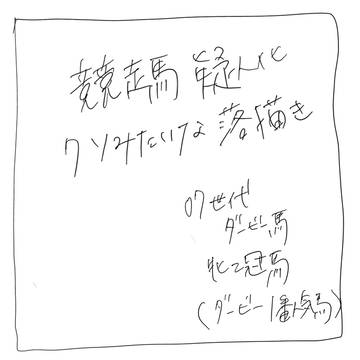 競走馬 擬人化
クソみたいな落描き
07世代
ダービー馬
牝二冠馬
(ダービー1番人気馬)